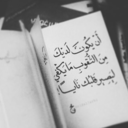 أن يكون لديك
من الثقوب ما يكفي
ليصير قلبك نايا